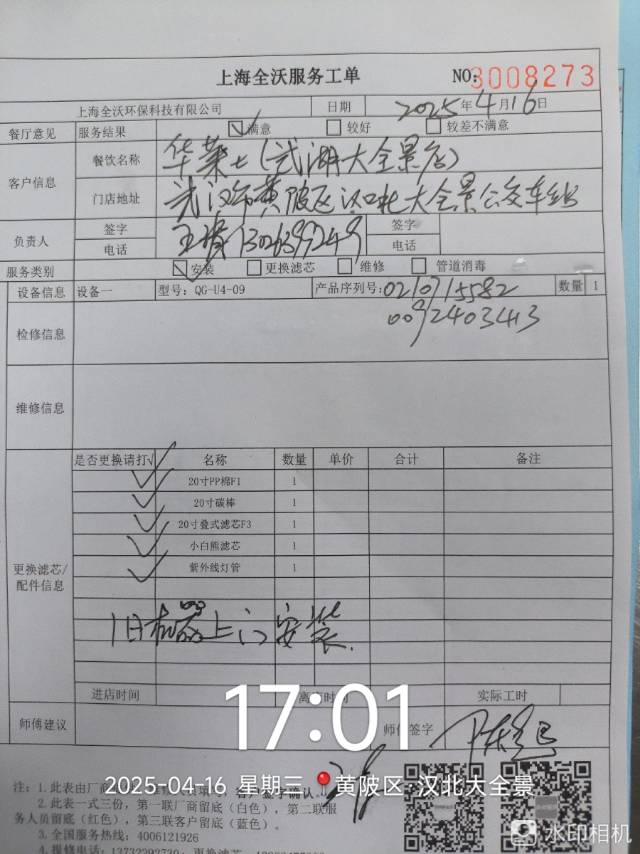 上海全沃服务工单
NO:3008273
上海全沃环保科技有限公司 日期 2025年4月16日
餐厅意见 服务结果 ✓满意 较好 较差不满意
客户信息 餐饮名称 华莱士(武湖大全景店)
门店地址 武汉市黄陂区汉口北大全景公交车站
负责人 签字 签字
电话 电话
服务类别 ✓安装 更换滤芯 维修 管道消毒
设备信息 设备一 型号: QG-U4-09 产品序列号: 0210715582 数量 1
0092403413
检修信息
维修信息
更换滤芯/配件信息
是否更换请打√ 名称 数量 单价 合计 备注
✓ 20寸PP棉F1 1
✓ 20寸碳棒 1
✓ 20寸叠式滤芯F3 1
✓ 小白熊滤芯 1
✓ 紫外线灯管 1
旧机器上门安装.
进店时间 实际工时
师傅建议 签字
17:01
2025-04-16 星期三 黄陂区·汉北大全景
注: 1. 此表由厂商
2. 此表一式三份, 第一联厂商留底(白色), 第二联服
务人员留底(红色), 第三联客户留底(蓝色)。
3. 全国服务热线: 4006121926
4. 报修电话: 13732292730
水印相机